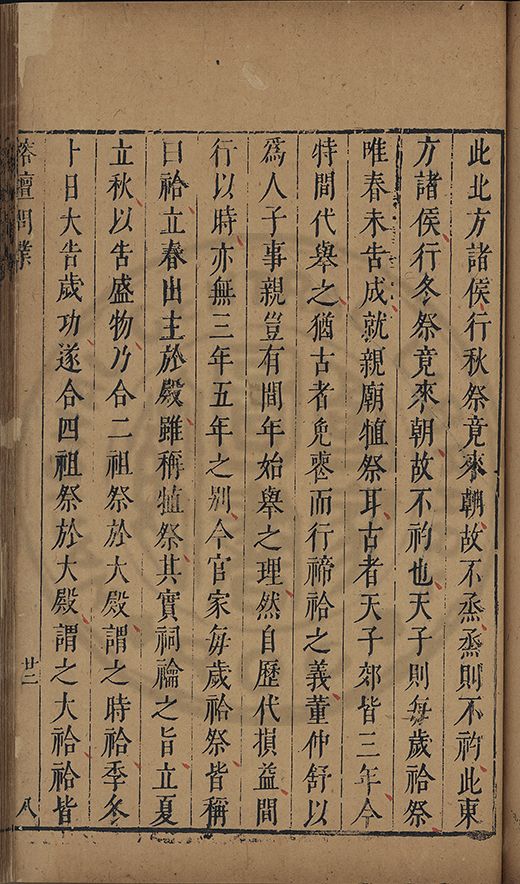 此北方諸侯行秋祭竟來朝故不烝烝則不礿此東
方諸侯行冬祭竟來朝故不礿也天子則每歲祫祭
唯春未告成就親廟犆祭耳古者天子郊皆三年今
特間代舉之猶古者免喪而行禘祫之義董仲舒以
爲人子事親豈有間年始舉之理然自歷代損益間
行以時亦無三年五年之別今官家每歲祫祭皆稱
曰祫立春出主於殿雖稱犆祭其實祠禴之旨立夏
立秋以告盛物乃合二祖祭於大殿謂之時祫季冬
十日大告歲功遂合四祖祭於大殿謂之大祫祫皆
榕壇問業
廿二
八